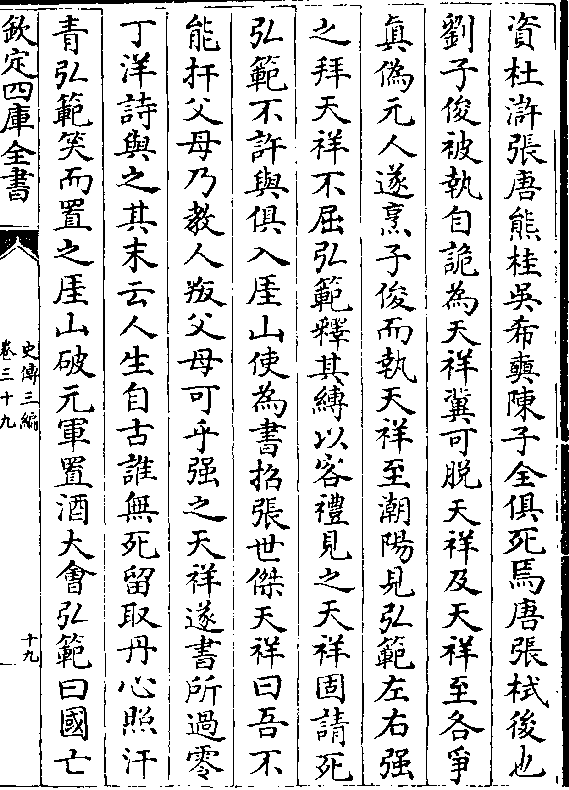 資杜滸張唐熊桂吳希奭陳子全俱死焉唐張栻後也
劉子俊被執自詭為天祥冀可脫天祥及天祥至各爭
真偽元人遂烹子俊而執天祥至潮陽見弘範左右强
之拜天祥不屈弘範釋其縛以客禮見之天祥固請死
弘範不許與俱入厓山使為書招張世傑天祥曰吾不
能扞父母乃教人叛父母可乎强之天祥遂書所過零
丁洋詩與之其末云人生自古誰無死留取丹心照汗
青弘範笑而置之厓山破元軍置酒大會弘範曰國亡
欽定四庫全書
史傳三編
卷三十九
十九